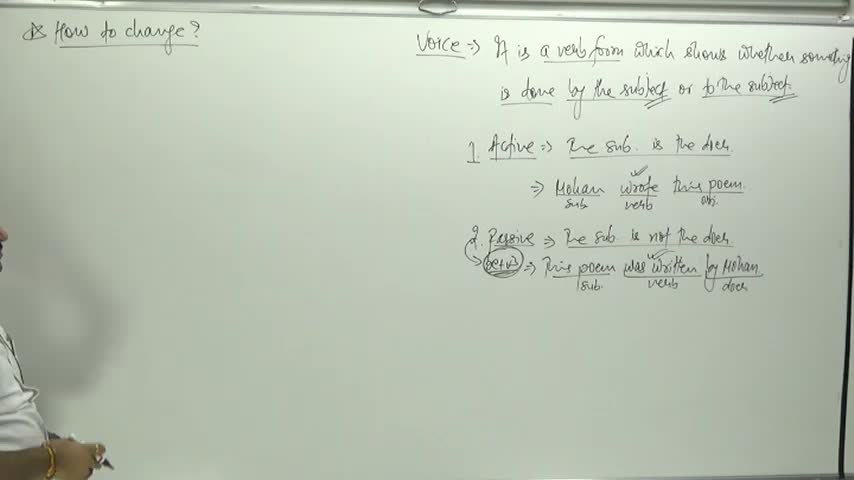 How to change?
Voice ⇒ It is a verb form which shows whether something
is done by the subject or to the subject.
1. Active ⇒ The sub. is the doer.
⇒ Mohan wrote this poem.
sub. verb obj.
2. Passive ⇒ The sub. is not the doer.
be+v3 ⇒ This poem was written by Mohan
sub. verb doer